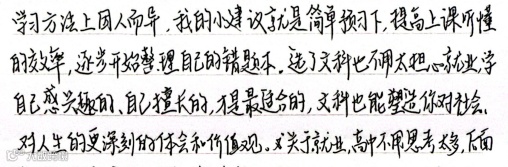 学习方法上因人而异，我的小建议就是简单预习下，提高上课听懂
的效率，逐步开始整理自己的错题本。选了文科也不用太担心就业，学
自己感兴趣的、自己擅长的，才是最适合的，文科也能塑造你对社会、
对人生的更深刻的体会和价值观。对于就业，高中不用思考太多，后面